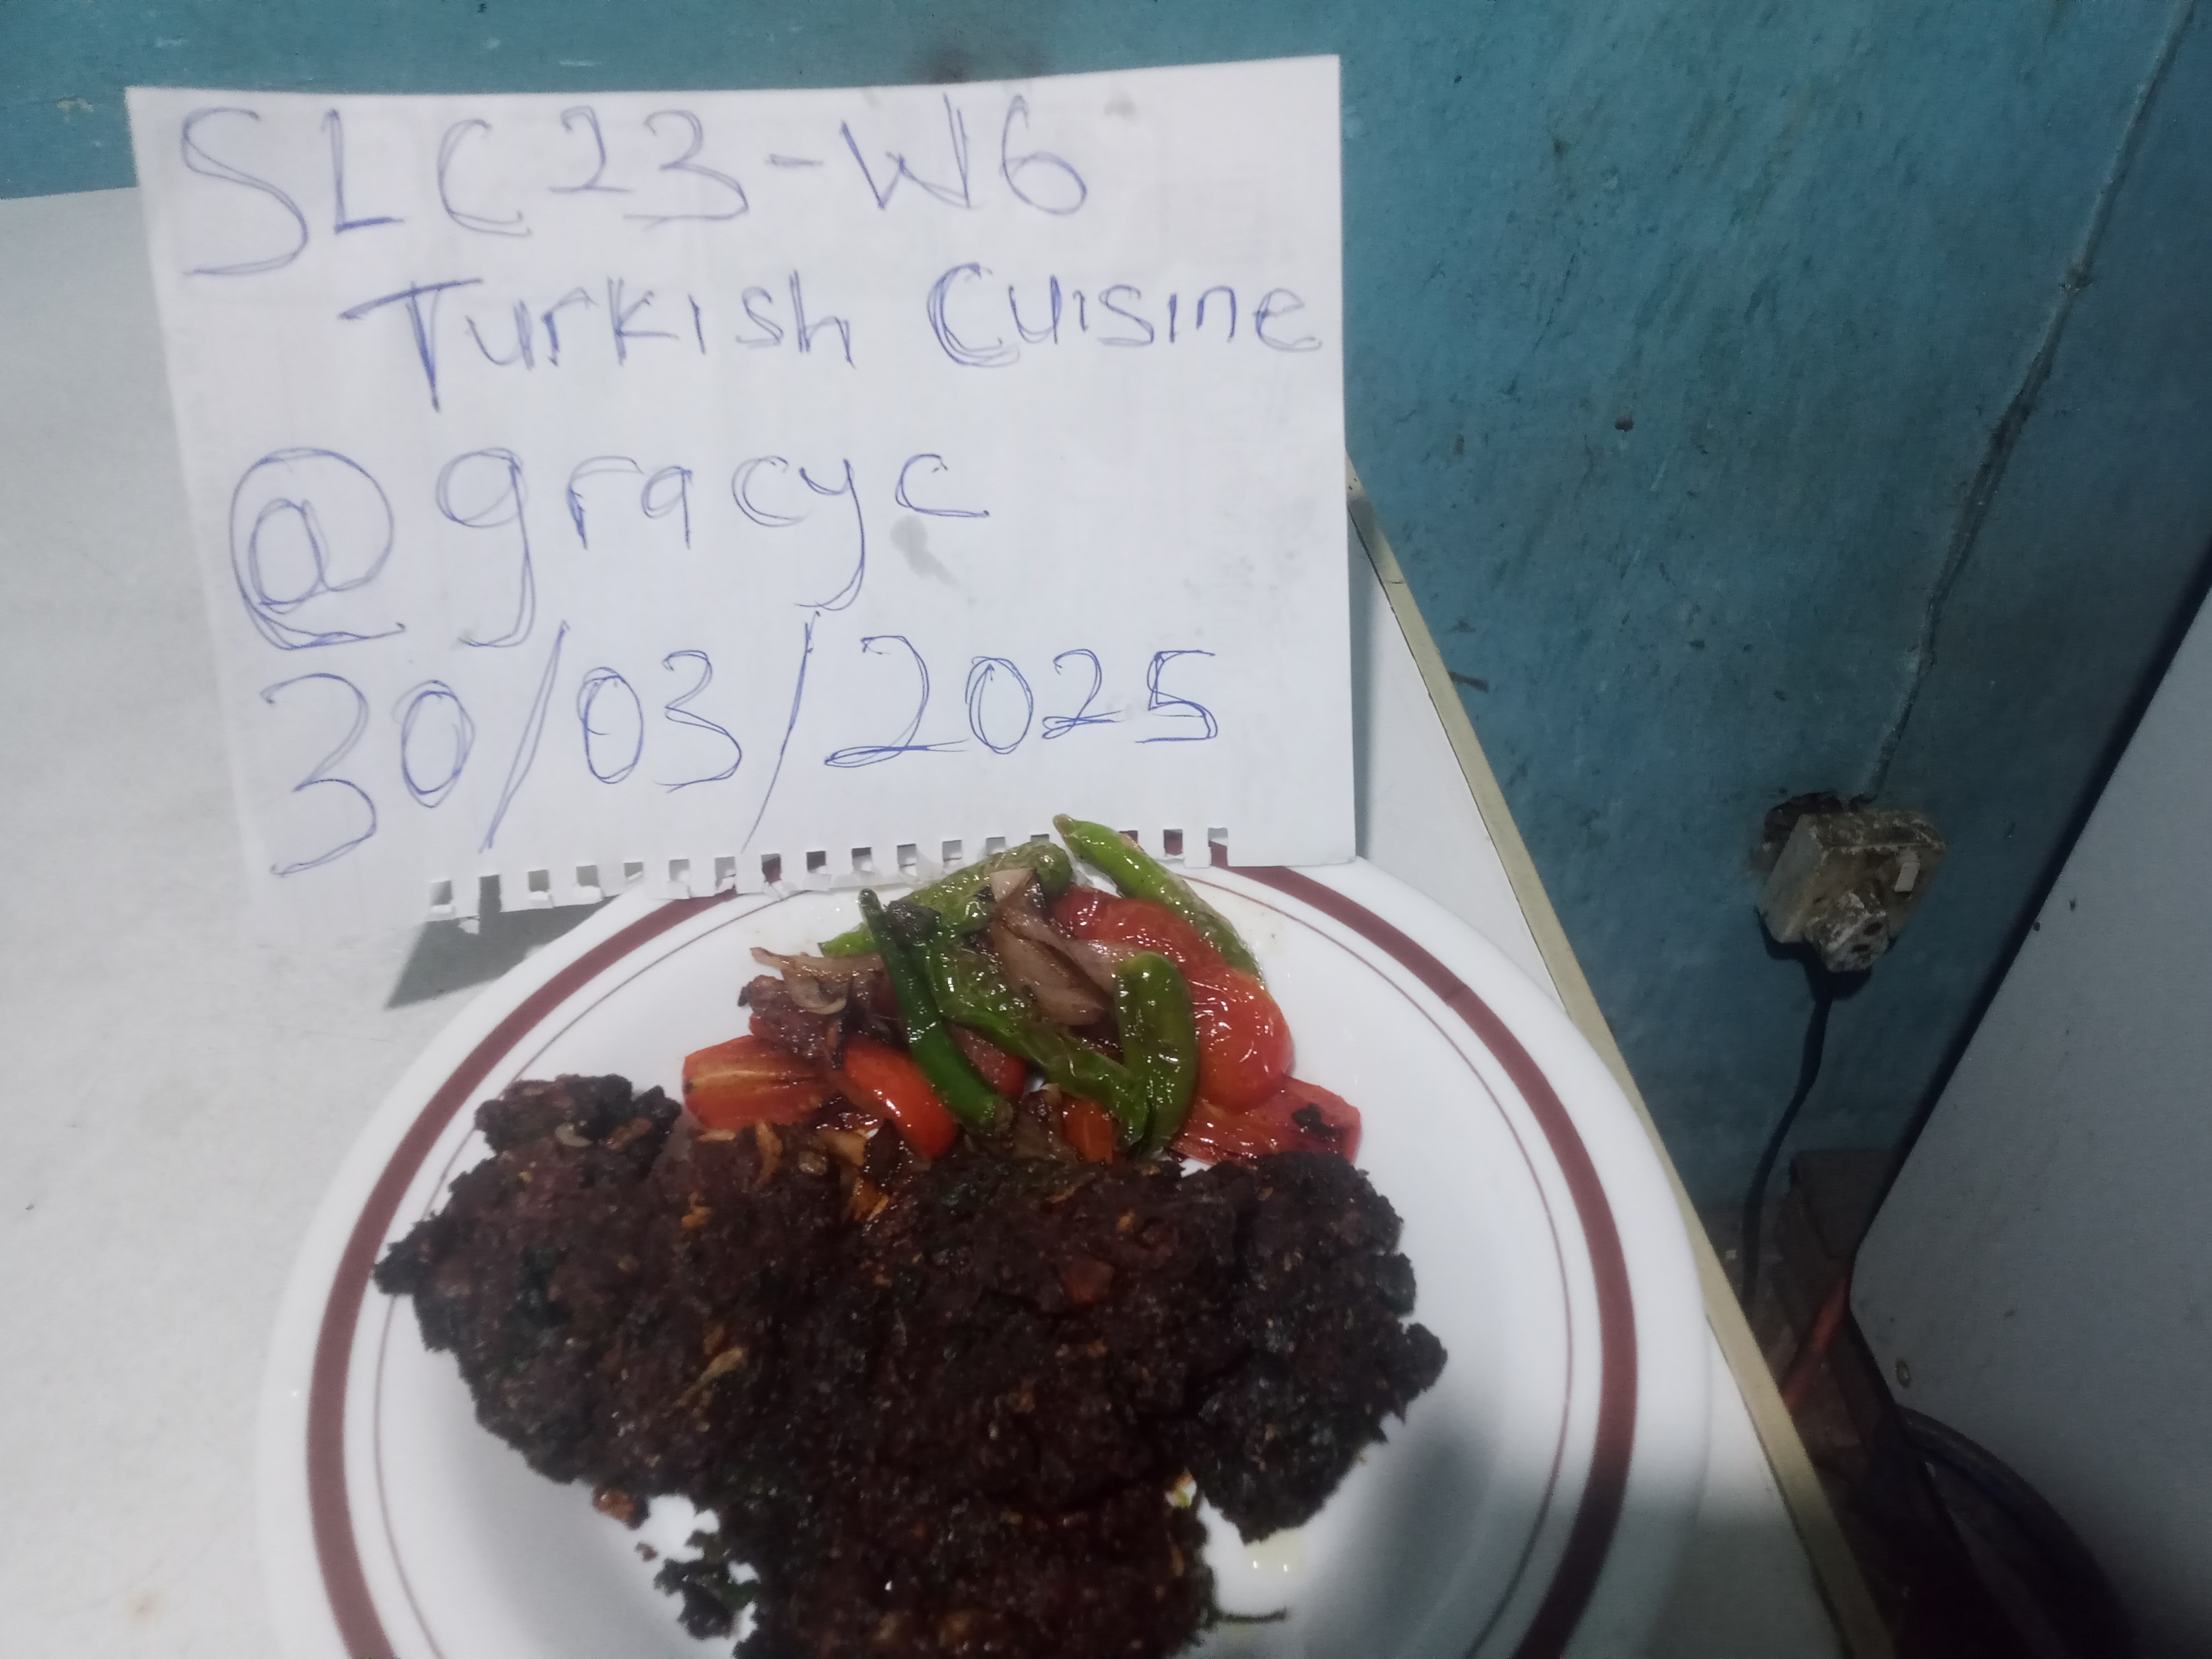 SLC23-W6
Turkish Cuisine
@gracyc
30/03/2025